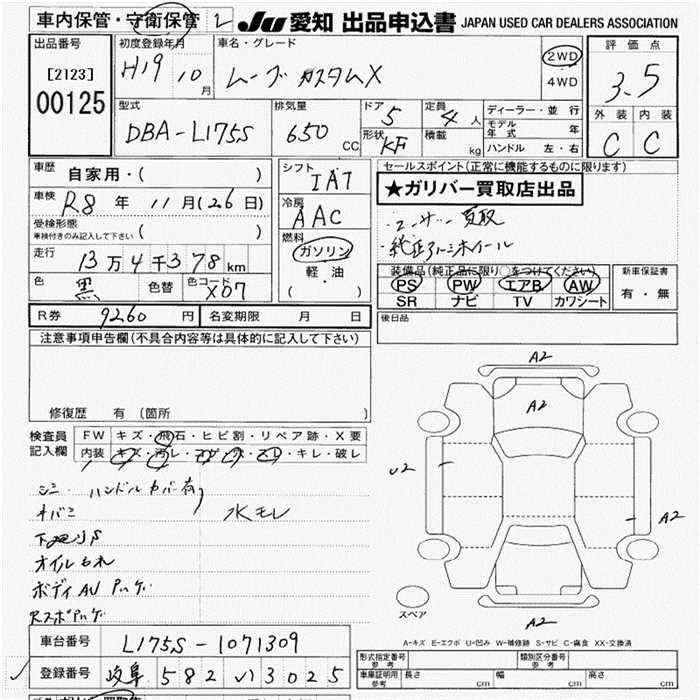 車内保管・守衛保管 2 JU 愛知 出品申込書 JAPAN USED CAR DEALERS ASSOCIATION
出品番号 [2123] 00125
初度登録年月 H19 10月
車名・グレード ムーブカスタムX
2WD
4WD
評価点 3.5
外装 C 内装 C
型式 DBA-L175S
排気量 650 CC
ドア 5
形状 KF
定員 4人
積載 kg
ディーラー・並行
モデル年式 年
ハンドル 左・右
車歴 自家用・( )
車検 R8年 11月(26日)
受検形態 車検付きのみ記入して下さい ( )
走行 13万4千378km
色 黒 色替 色コード X07
シフト IAT
冷房 AAC
燃料 ガソリン
軽・油
( )
セールスポイント(正常に機能するものに限ります)
★ガリバー買取店出品
・ユーザー買取
・純正アルミホイール
装備品(純正品に限り○をつけてください)
PS PW エアB AW
SR ナビ TV カワシート
新車保証書
有・無
R券 9260円 名変期限 月 日
後日品
注意事項申告欄(不具合内容等は具体的に記入して下さい)
修復歴 有(箇所 )
検査員記入欄 FW キズ・飛石・ヒビ割・リペア跡・X要
内装 キズ・汚レ・コゲ・穴・スレ・キレ・破レ
シミ ハンドルカバー有り
水モレ
オイルもれ
A2
A2
U2
A2
A2
スペア
A-キズ E-エクボ U-凹み W-補修跡 S-サビ C-腐食 XX-交換済
車台番号 L175S-1071309
登録番号 岐阜 582 い 3025
形式指定番号 参考
類別区分番号 参考
車庫証明用 参考 長さ cm 幅 cm 高さ cm